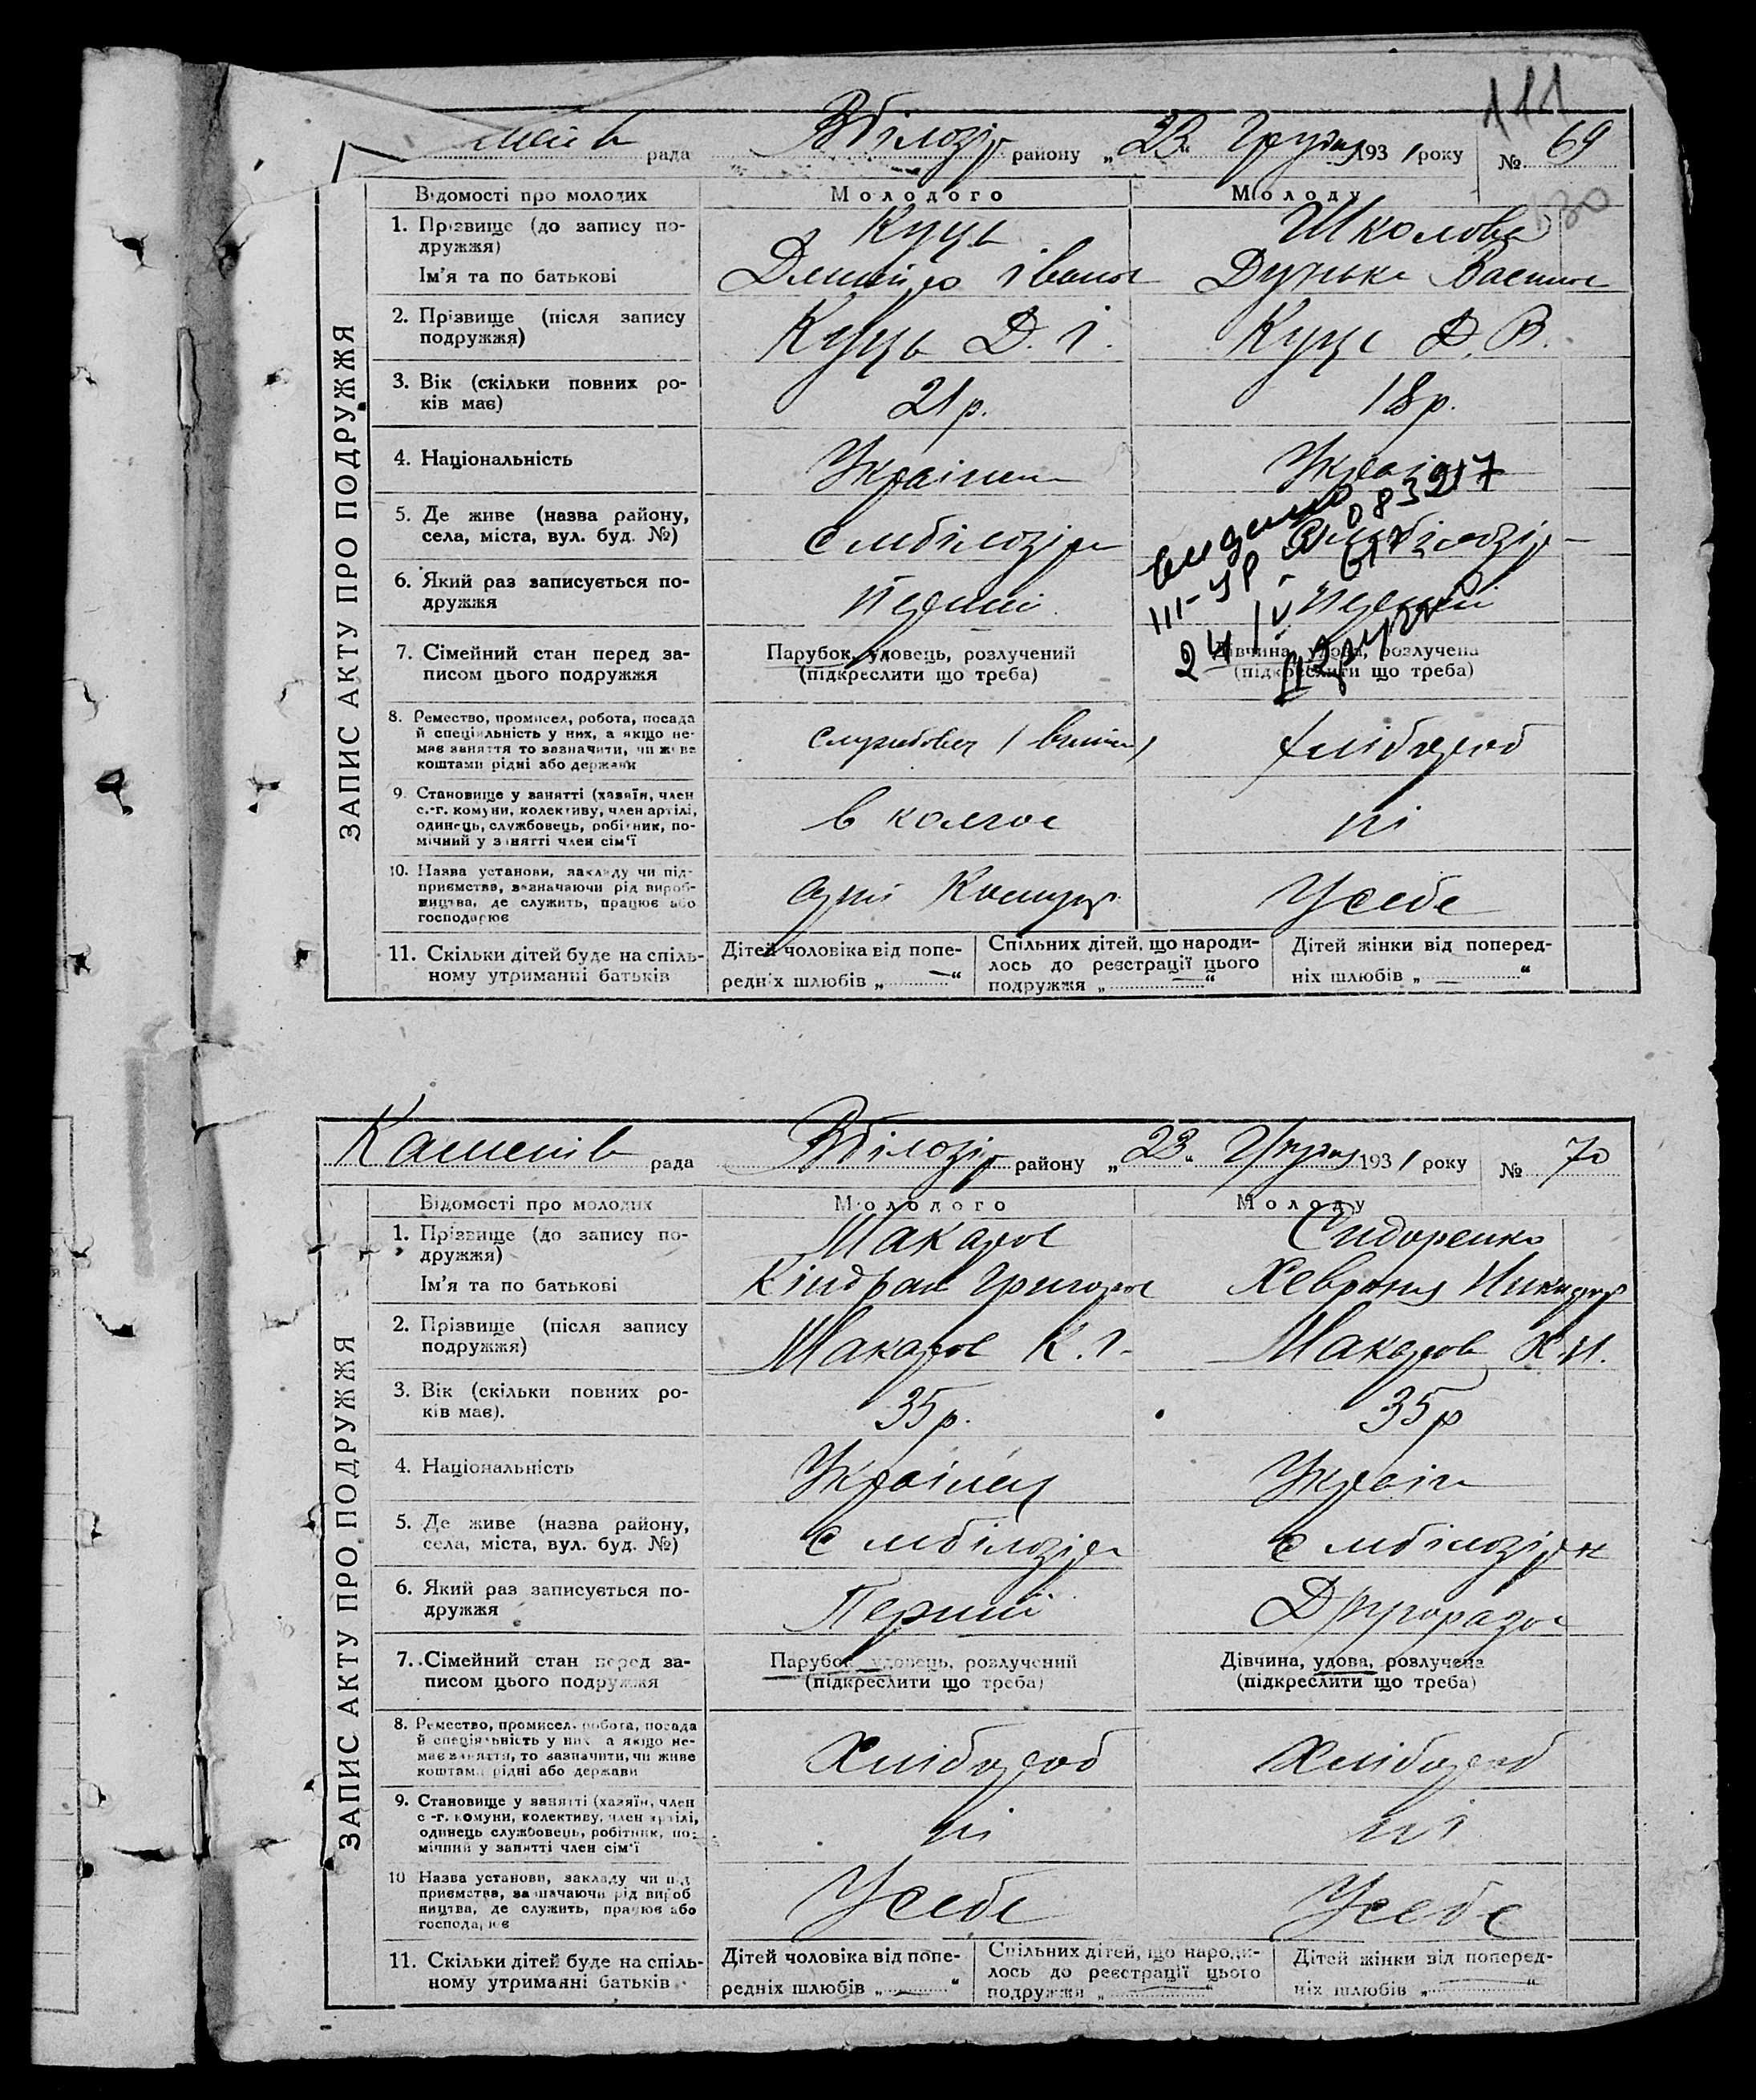 111
рада Вбілозір району „23“ Грудня 1931 року № 69
130
Відомості про молодих Молодого Молоду
1. Прізвище (до запису по-
дружжя) Куць Школова
Ім'я та по батькові Дмитро Іванов Дунька Васил
2. Прізвище (після запису
подружжя) Куць Д. І. Куце Д. В.
3. Вік (скільки повних ро-
ків має) 21 р. 18 р.
4. Національність Українец Украін
083217
5. Де живе (назва району,
села, міста, вул. буд. №) с мбілозірк с мбілозір
видано
III-УР
6. Який раз записується по-
дружжя Перший Перший
24/IV
7. Сімейний стан перед за-
писом цього подружжя Парубок, удовець, розлучений
(підкреслити що треба) Дівчина, удова, розлучена
(підкреслити що треба)
8. Ремество, промисел, робота, посада
й спеціяльність у них, а якщо не-
має заняття то зазначити, чи живе
коштами рідні або держави службовец хлібороб
9. Становище у занятті (хазяїн, член
с.-г. комуни, колективу, член артілі,
одинець, службовець, робітник, по-
мічний у занятті член сім'ї в колгос ні
10. Назва установи, закладу чи під-
приємства, зазначаючи рід вироб-
ництва, де служить, працює або
господарює Усебе
11. Скільки дітей буде на спіль-
ному утриманні батьків Дітей чоловіка від попе-
редніх шлюбів „—“ Спільних дітей, що народи-
лось до реєстрації цього
подружжя „—“ Дітей жінки від поперед-
ніх шлюбів „—“
ЗАПИС АКТУ ПРО ПОДРУЖЖЯ
Каменів рада Вбілозір району „23“ Грудня 1931 року № 70
Відомості про молодих Молодого Молоду
1. Прізвище (до запису по-
дружжя) Макаров Сидоренко
Ім'я та по батькові Кіндрат Григоров Хевронія Никидор
2. Прізвище (після запису
подружжя) Макаров К. Г. Макарова Х. Н.
3. Вік (скільки повних ро-
ків має). 35 р. 35 р
4. Національність Українец Украін
5. Де живе (назва району,
села, міста, вул. буд. №) с мбілозірк с мбілозірк
6. Який раз записується по-
дружжя Перший Другоразов
7. Сімейний стан перед за-
писом цього подружжя Парубок, удовець, розлучений
(підкреслити що треба) Дівчина, удова, розлучена
(підкреслити що треба)
8. Ремество, промисел, робота, посада
й спеціяльність у них а якщо не-
має заняття, то зазначити, чи живе
коштами рідні або держави Хлібороб Хлібороб
9. Становище у занятті (хазяїн, член
с-г. комуни, колективу, член артілі,
одинець службовець, робітник, по-
мічний у занятті член сім'ї ні ні
10 Назва установи, закладу чи під
приємства, зазначаючи рід вироб
ництва, де служить, працює або
господарює Усебе Усебе
11. Скільки дітей буде на спіль-
ному утриманні батьків Дітей чоловіка від попе-
редніх шлюбів „—“ Спільних дітей, що народи-
лось до реєстрації цього
подружжя „—“ Дітей жінки від поперед-
ніх шлюбів „—“
ЗАПИС АКТУ ПРО ПОДРУЖЖЯ